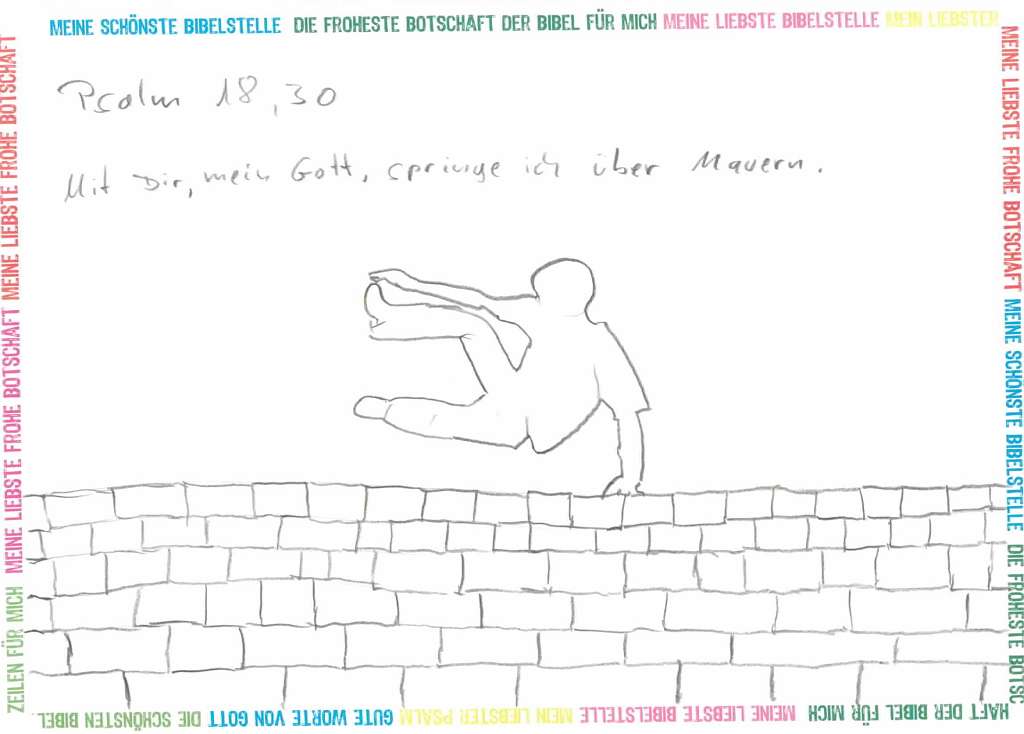 MEINE SCHÖNSTE BIBELSTELLE DIE FROHESTE BOTSCHAFT DER BIBEL FÜR MICH MEINE LIEBSTE BIBELSTELLE MEIN LIEBSTER
Psalm 18,30
Mit Dir, mein Gott, springe ich über Mauern.
MEINE LIEBSTE FROHE BOTSCHAFT MEINE SCHÖNSTE BIBELSTELLE DIE FROHESTE BOTSC
HAFT DER BIBEL FÜR MICH MEINE LIEBSTE BIBELSTELLE MEIN LIEBSTER PSALM GUTE WORTE VON GOTT DIE SCHÖNSTEN BIBEL
ZEILEN FÜR MICH MEINE LIEBSTE FROHE BOTSCHAFT MEINE LIEBSTE FROHE BOTSCHAFT